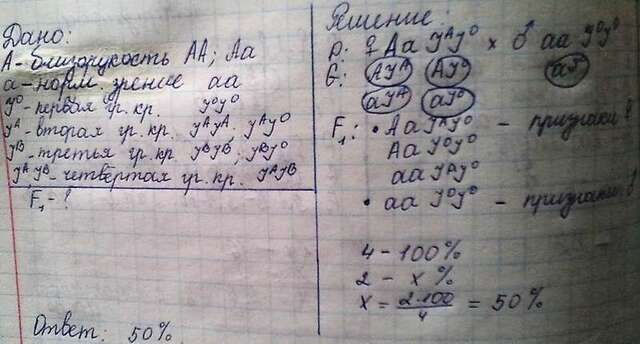 Дано:
А - близорукость АА; Аа
а - норм. зрение аа
J⁰ - первая гр. кр. J⁰J⁰
Jᴬ - вторая гр. кр. JᴬJᴬ, JᴬJ⁰
Jᴮ - третья гр. кр. JᴮJᴮ, JᴮJ⁰
JᴬJᴮ - четвертая гр. кр. JᴬJᴮ
F₁ - ?
Ответ: 50%
Решение:
р: ♀ Аа JᴬJ⁰ × ♂ аа J⁰J⁰
G: АJᴬ АJ⁰ аJ⁰
аJᴬ аJ⁰
F₁: • Аа JᴬJ⁰ -
Аа J⁰J⁰
аа JᴬJ⁰
• аа J⁰J⁰ -
4 - 100%
2 - х %
х = 2·100/4 = 50%